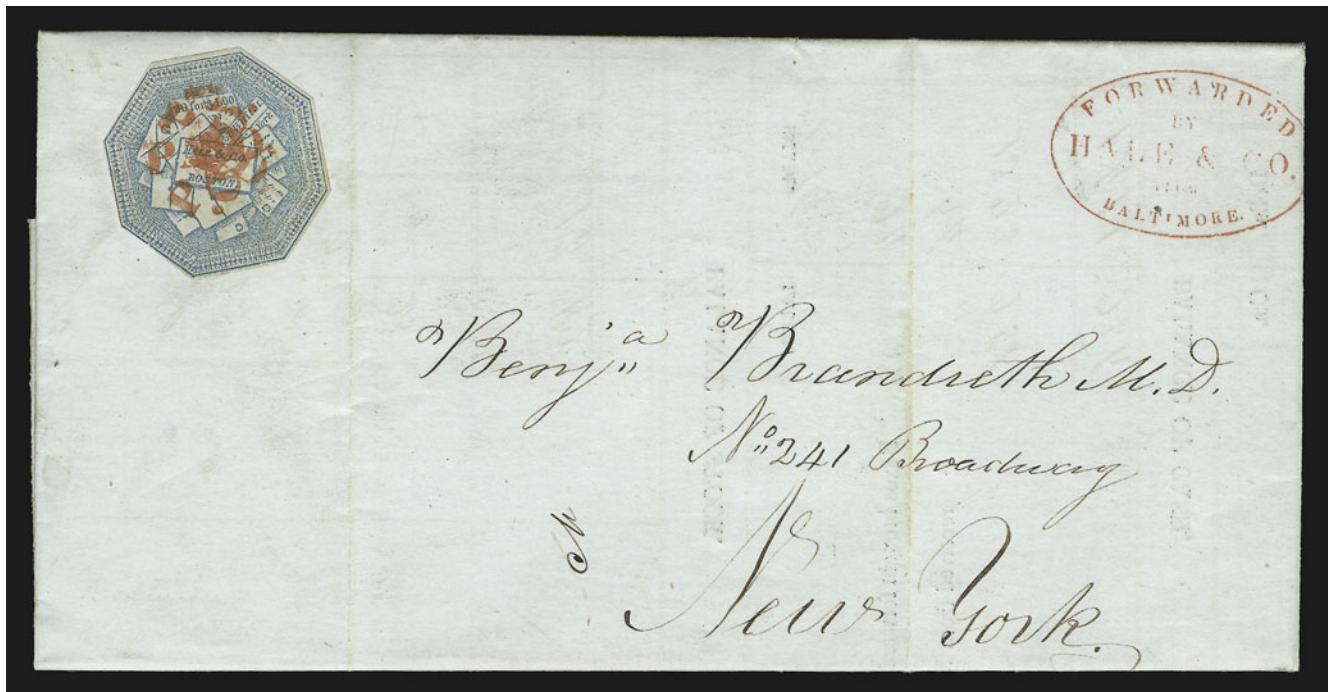 20 for $1.00
HALE & CO.
BOSTON
FORWARDED
BY
HALE & CO.
FROM
BALTIMORE.
Benjª Brandreth M. D.
Nº 241 Broadway
New York.